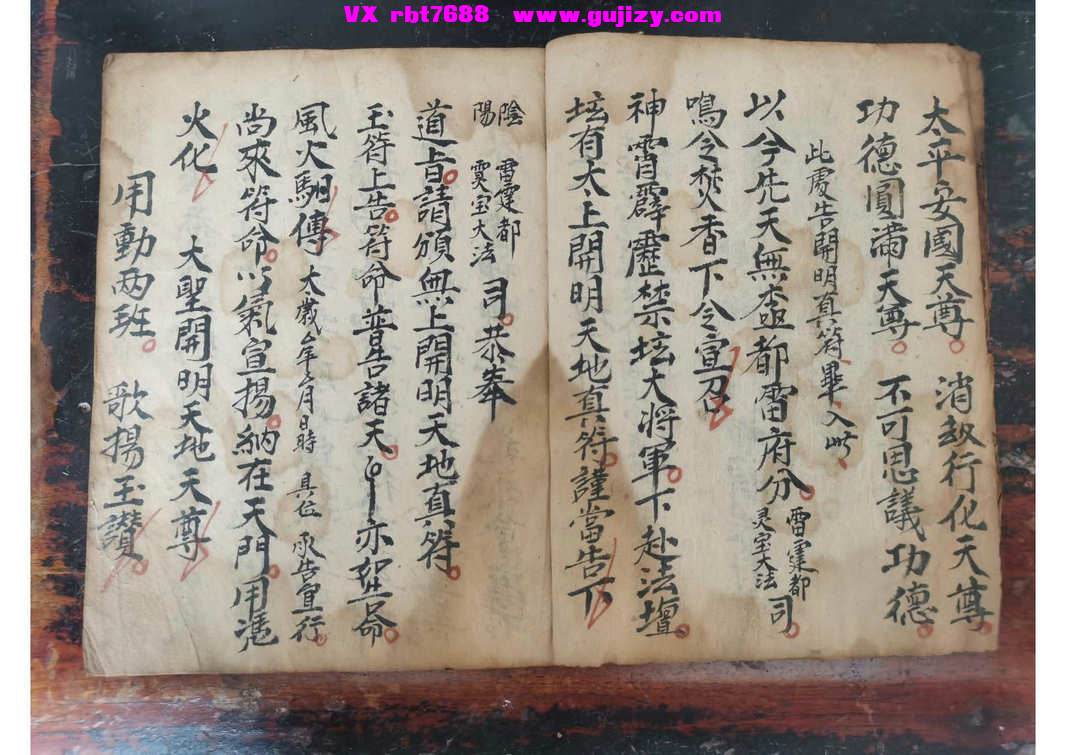 VX rbt7688 www.gujizy.com
太平安國天尊。 消劫行化天尊。
功德圓滿天尊。 不可思議功德。
此處告開明真符畢入此
以今先天無極都雷府分。雷霆都 灵宝大法 司。
鳴令焚香下令宣召
神霄霹靂禁坛大将軍。下赴法壇。
坛有太上開明天地真符。謹當告下
陰陽 雷霆都 灵宝大法 司。恭奉
道旨。請頒無上開明天地真符。
玉符上告。符命普告諸天。 亦如告命。
風火馹傳 太歲 年 月 日時 具位 承告宣行。
尚來符命。以氣宣揚。納在天門。用憑
火化 大聖開明天地天尊
用動两班。 歌揚玉讚。